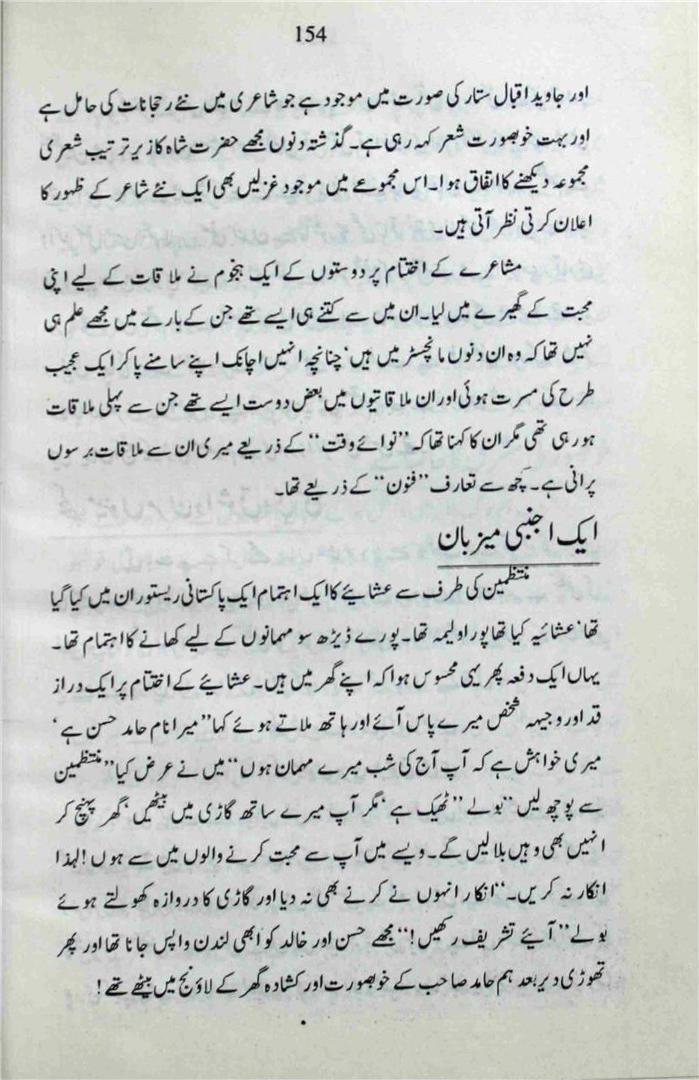 154
اور جاوید اقبال ستار کی صورت میں موجود ہے جو شاعری میں نئے رجحانات کی حامل ہے
اور بہت خوبصورت شعر کہہ رہی ہے۔ گذشتہ دنوں مجھے حضرت شاہ کا زیر ترتیب شعری
مجموعہ دیکھنے کا اتفاق ہوا۔ اس مجموعے میں موجود غزلیں بھی ایک نئے شاعر کے ظہور کا
اعلان کرتی نظر آتی ہیں۔
مشاعرے کے اختتام پر دوستوں کے ایک ہجوم نے ملاقات کے لیے اپنی
محبت کے گھیرے میں لیا۔ ان میں سے کتنے ہی ایسے تھے جن کے بارے میں مجھے علم ہی
نہیں تھا کہ وہ ان دنوں مانچسٹر میں ہیں‘ چنانچہ انہیں اچانک اپنے سامنے پا کر ایک عجیب
طرح کی مسرت ہوئی اور ان ملاقاتیوں میں بعض دوست ایسے تھے جن سے پہلی ملاقات
ہو رہی تھی مگر ان کا کہنا تھا کہ ”نوائے وقت“ کے ذریعے میری ان سے ملاقات برسوں
پرانی ہے۔ کچھ سے تعارف ”فنون“ کے ذریعے تھا۔
ایک اجنبی میزبان
منتظمین کی طرف سے عشائیے کا ایک اہتمام ایک پاکستانی ریستوران میں کیا گیا
تھا‘ عشائیہ کیا تھا پورا ولیمہ تھا۔ پورے ڈیڑھ سو مہمانوں کے لیے کھانے کا اہتمام تھا۔
یہاں ایک دفعہ پھر یہی محسوس ہوا کہ اپنے گھر میں ہیں۔ عشائیے کے اختتام پر ایک دراز
قد اور وجیہہ شخص میرے پاس آئے اور ہاتھ ملاتے ہوئے کہا ”میرا نام حامد حسن ہے‘
میری خواہش ہے کہ آپ آج کی شب میرے مہمان ہوں“ میں نے عرض کیا ”منتظمین
سے پوچھ لیں“ بولے ”ٹھیک ہے‘ مگر آپ میرے ساتھ گاڑی میں بیٹھیں‘ گھر پہنچ کر
انہیں بھی وہیں بلا لیں گے۔ ویسے میں آپ سے محبت کرنے والوں میں سے ہوں! لہذا
انکار نہ کریں۔“ انکار انہوں نے کرنے بھی نہ دیا اور گاڑی کا دروازہ کھولتے ہوئے
بولے ”آئیے تشریف رکھیں!“ مجھے حسن اور خالد کو ابھی لندن واپس جانا تھا اور پھر
تھوڑی دیر بعد ہم حامد صاحب کے خوبصورت اور کشادہ گھر کے لاؤنج میں بیٹھے تھے!